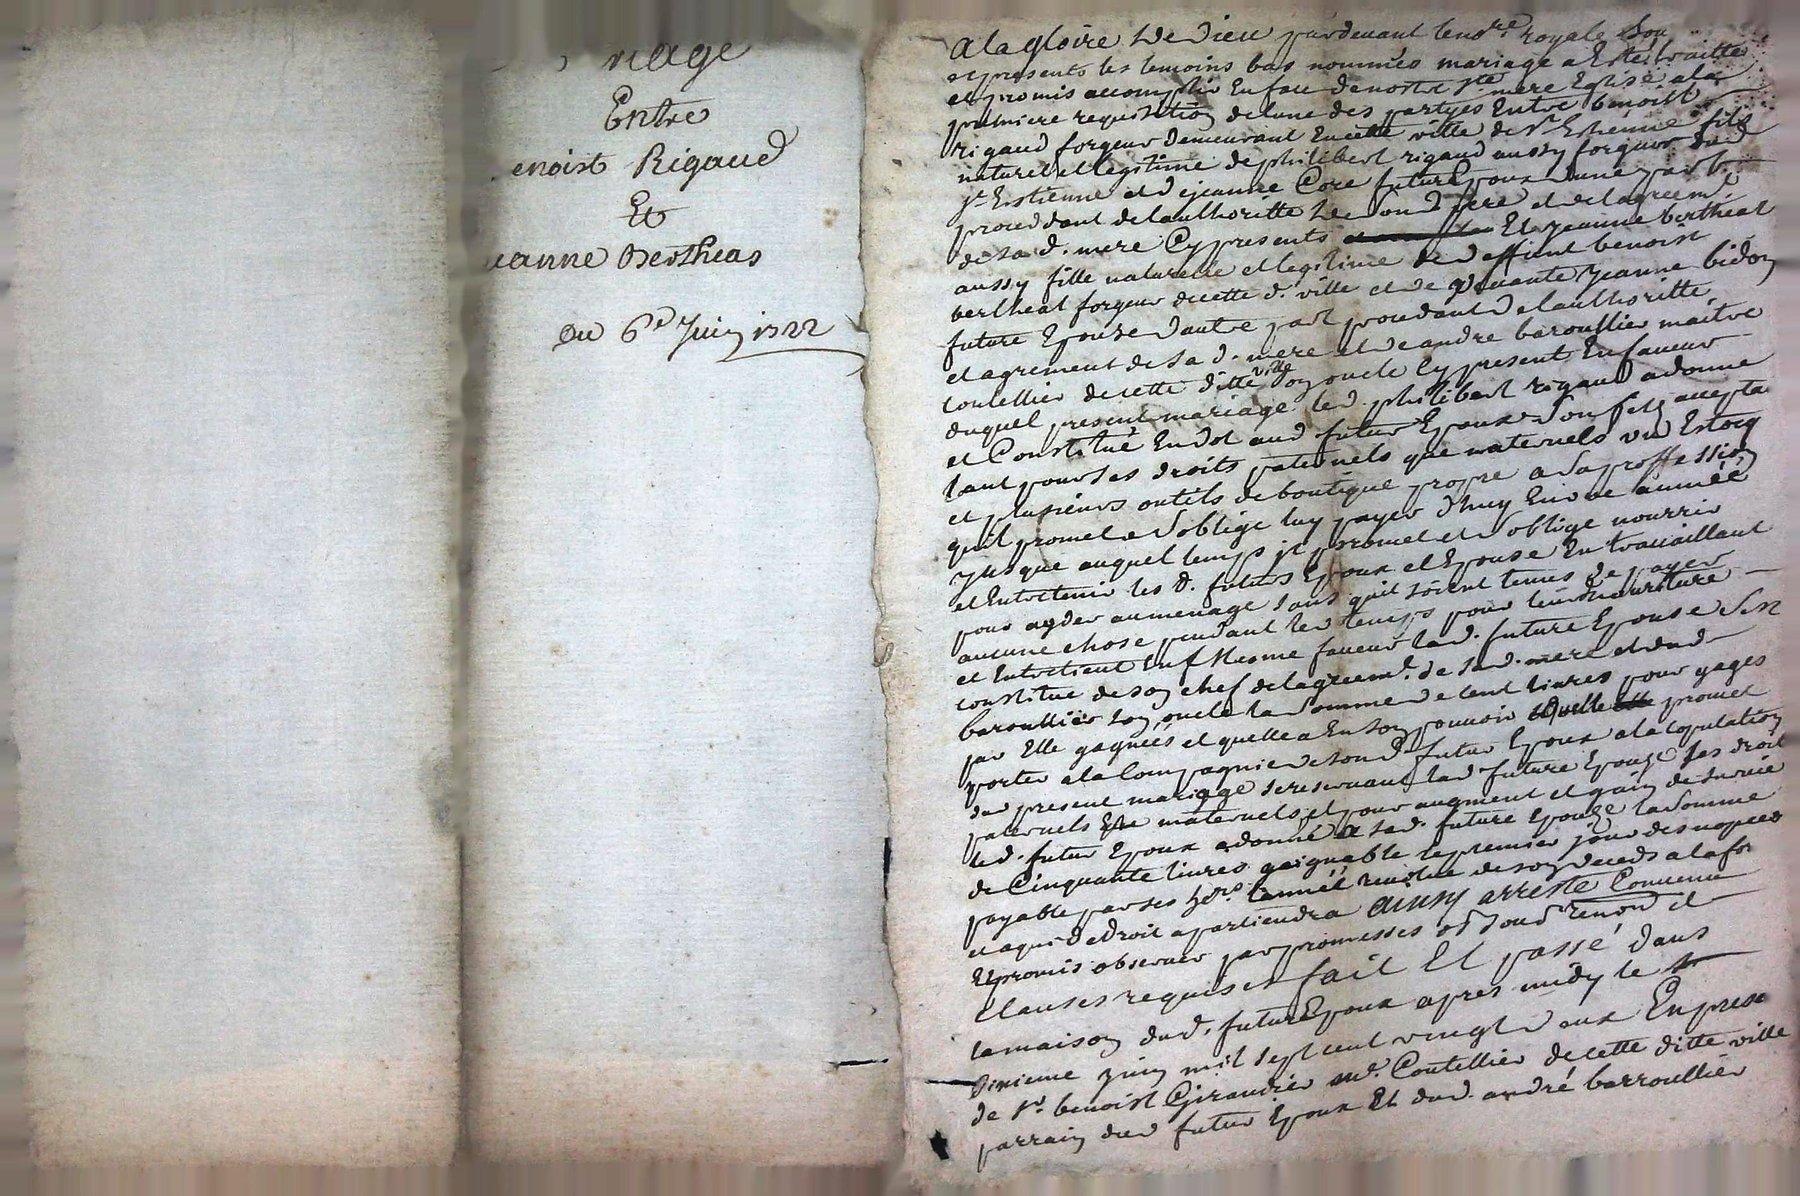 nage
Entre
enoist Rigaud
Et
eanne Bertheas
Du 6e Juin 1722
A la gloire de Dieu pardevant le no.re royale Sou
et presents les temoins bas nommés mariage a Esté traitte
et promis accomplir En face de nostre s.te mere Eglise a la
premiere requisition de lune des partyes Entre benoist
rigaud forgeur demeurant En cette ville de S.t Estienne fils
naturel et legitime de philibert rigaud aussy forgeur dud
s.t Estienne et de jeanne Core futur Epoux dune part
proceddant de lauthoritte de Son d. pere et de lagreem.t
de sa d. mere Cy presents Et jeanne bertheas
aussy fille naturelle et legitime de deffunt benoist
bertheas forgeur de cette d. ville et de vivante jeanne bidon
future Epouse dautre part proceddant de lauthoritte
et agrement de sa d. mere et de andre baroullier maitre
coutellier de cette ditte ville son oncle Cy present En faveur
duquel present mariage led. philibert rigaud a donne
et Constitué En dot aud futur Epoux Son fils accepta
tant pour ses droits paternels que maternels un Estocq
et plusieurs outils de boutique propre a Sa proffession
quil promet et Soblige luy payer dhuy En une année
jusque auquel temps jl promet et Soblige nourrir
et Entretenir les d. futurs Epoux et Epouse En travaillant
pour ayder au menage sans quil soient tenus de payer
aucune chose pendant led temps pour leur nourriture
et Entretient En mesme faveur lad. future Epouse Sest
constitue de son chef de lagreem.t de sad. mere et dud
baroullier son oncle la somme de cent livres pour gages
par Elle gagnées et quelle a En son pouvoir quelle promet
porter a la Compagnie de sond. futur Epoux a la Copulation
du present mariage se reservant lad future Epouse ses droit
paternels maternels et pour augment et gain de survie
led. futur Epoux a donné a sad. future Epouse la somme
de Cinquante livres gaignable le premier jour des nopces
payable par ses hers. lannée revolue de son deceds a la fo
et a qui de droit apartiendra ainsy arresté Convenu
Et promis observer par promesses ob. soud. renon.d et
clauses requises fait Et passé dans
la maison dud. futur Epoux apres midy le
sixieme juin mil sept cent vingt deux En prese
de s.r benoist Giraudier m.d Coutellier de cette ditte ville
parrain dud futur Epoux Et dud. andré barroullier